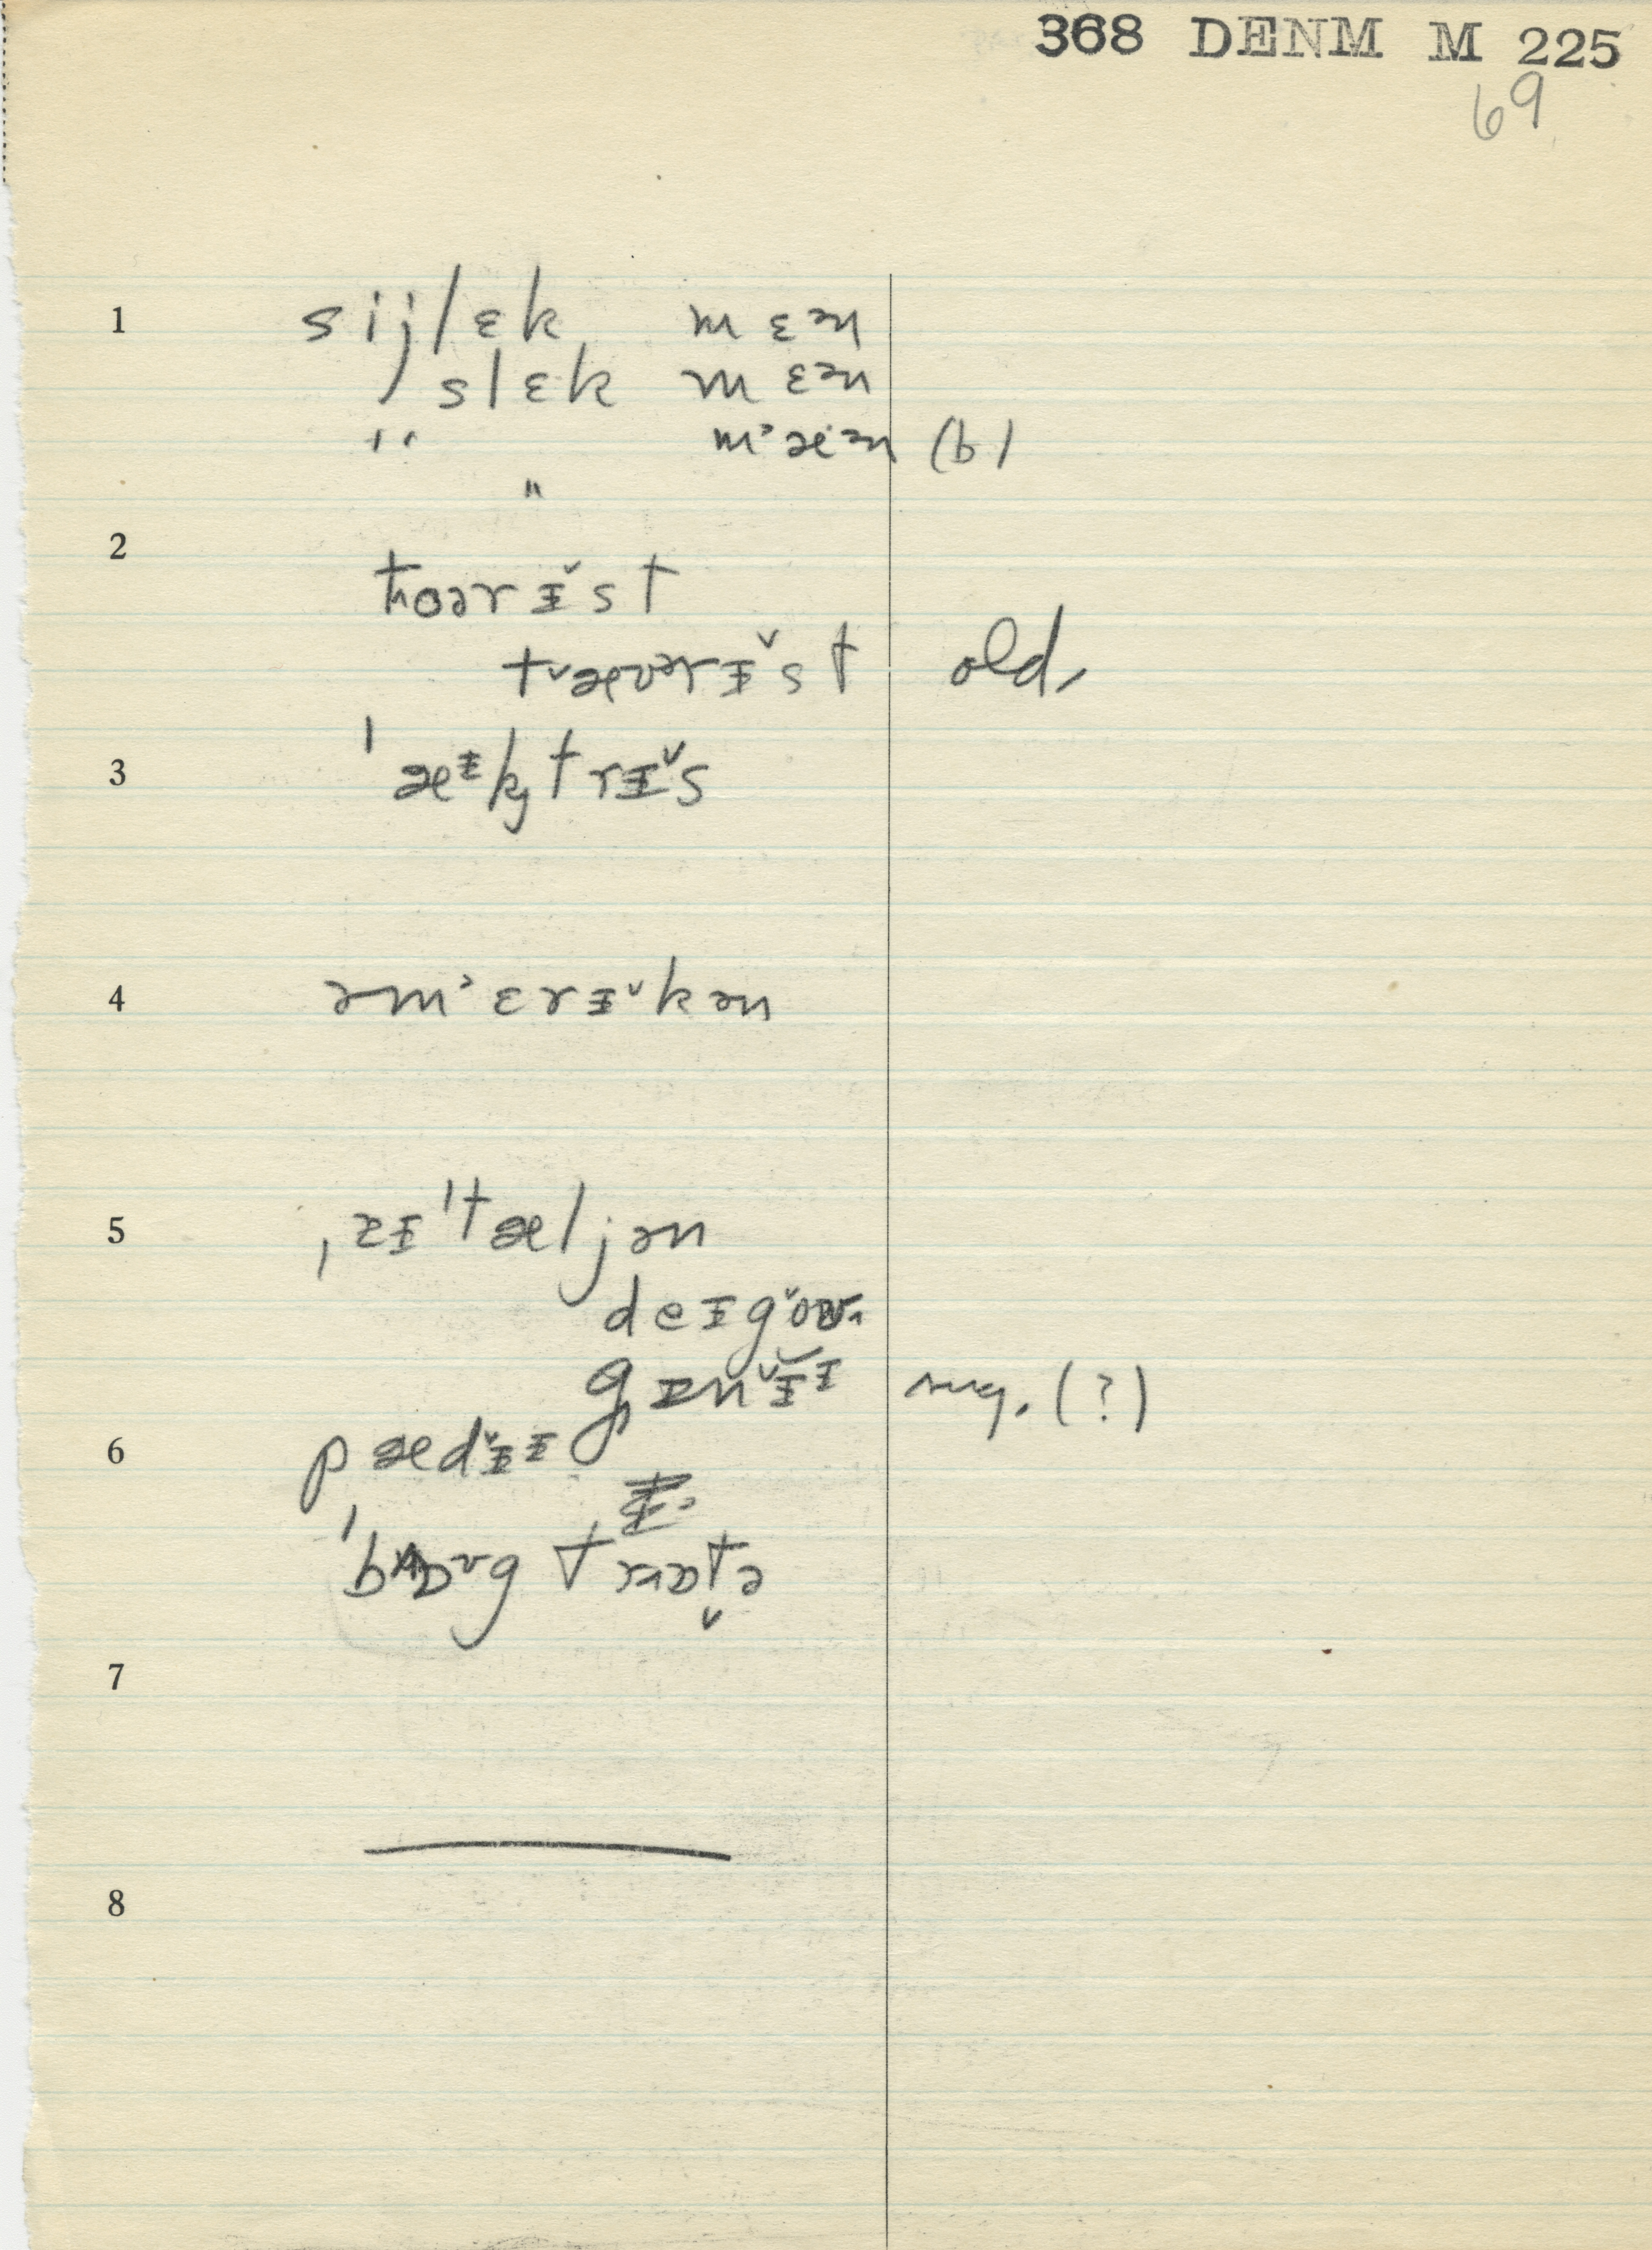 368 DENM M 225
69
1 sijlɛk mɛən
slɛk mɛən
" m˒æ·ən (b)
"
2
tʰoərɪ̵̌st
t˅æʊərɪ̵̌st old,
3 ˈæᵻkʲtrɪ̵̌s
4 əm˒ɛrɪ̵˅kən
5 ˌɪɪˈtæljən
deɪg˅oʊ
gɪn˅ɪ̵ɪ̵ sug. (?)
6 pæd˅ɪ̵ɪ̵
ˈbɒʊg trɒt̬ə
7
8